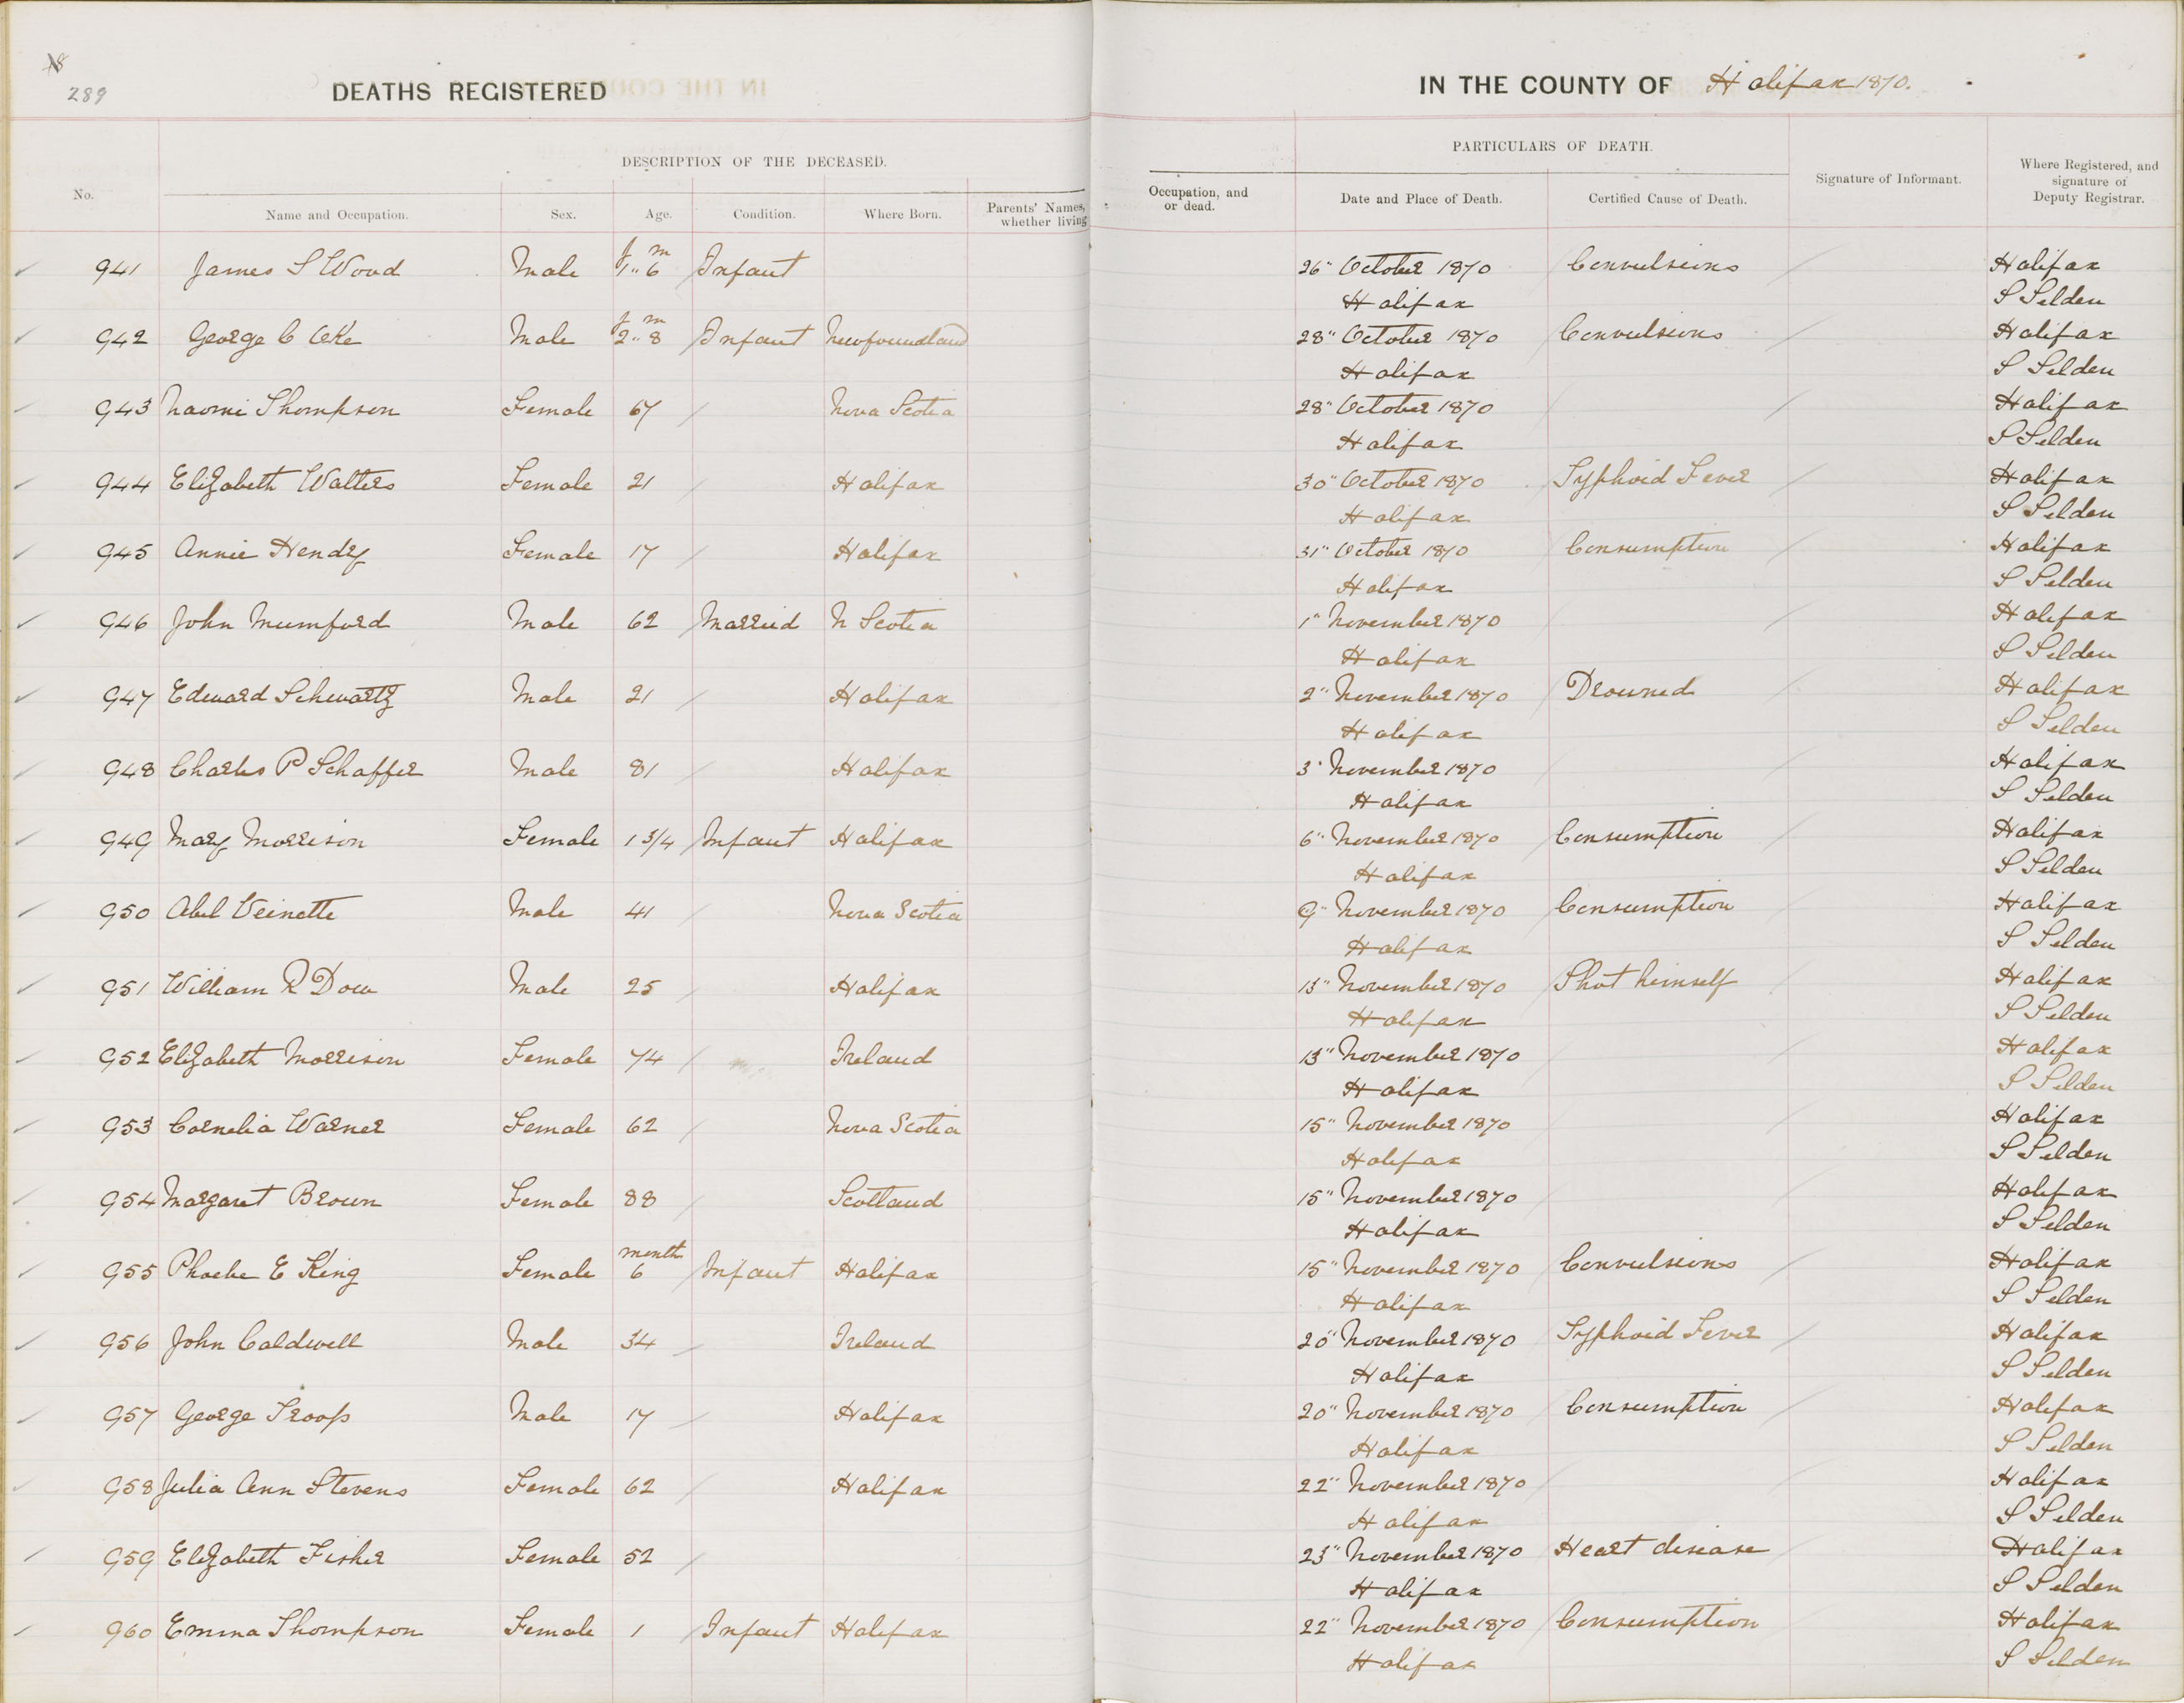 289
DEATHS REGISTERED IN THE COUNTY OF Halifax 1870.
DESCRIPTION OF THE DECEASED. PARTICULARS OF DEATH.
No. Name and Occupation. Sex. Age. Condition. Where Born. Parents' Names, whether living Occupation, and or dead. Date and Place of Death. Certified Cause of Death. Signature of Informant. Where Registered, and signature of Deputy Registrar.
941 James S Wood Male y 1 .. m 6 Infant 26" October 1870 Convulsions Halifax
Halifax S Selden
942 George C Oke Male y 2 .. m 8 Infant Newfoundland 28" October 1870 Convulsions Halifax
Halifax S Selden
943 Naomi Thompson Female 67 Nova Scotia 28" October 1870 Halifax
Halifax S Selden
944 Elizabeth Walters Female 21 Halifax 30" October 1870 Typhoid Fever Halifax
Halifax S Selden
945 Annie Hendry Female 17 Halifax 31" October 1870 Consumption Halifax
Halifax S Selden
946 John Mumford Male 62 Married N Scotia 1" November 1870 Halifax
Halifax S Selden
947 Edward Schwartz Male 21 Halifax 2" November 1870 Drowned Halifax
Halifax S Selden
948 Charles P Schaffer Male 81 Halifax 3" November 1870 Halifax
Halifax S Selden
949 Mary Morrison Female 1 3/4 Infant Halifax 6" November 1870 Consumption Halifax
Halifax S Selden
950 Abel Veinotte Male 41 Nova Scotia 9" November 1870 Consumption Halifax
Halifax S Selden
951 William R Dow Male 25 Halifax 13" November 1870 Shot himself Halifax
Halifax S Selden
952 Elizabeth Morrison Female 74 Ireland 13" November 1870 Halifax
Halifax S Selden
953 Cornelia Warner Female 62 Nova Scotia 15" November 1870 Halifax
Halifax S Selden
954 Margaret Brown Female 88 Scotland 15" November 1870 Halifax
Halifax S Selden
955 Phoebe E King Female month 6 Infant Halifax 15" November 1870 Convulsions Halifax
Halifax S Selden
956 John Caldwell Male 34 Ireland 20" November 1870 Typhoid Fever Halifax
Halifax S Selden
957 George Troop Male 17 Halifax 20" November 1870 Consumption Halifax
Halifax S Selden
958 Julia Ann Stevens Female 62 Halifax 22" November 1870 Halifax
Halifax S Selden
959 Elizabeth Fisher Female 52 23" November 1870 Heart disease Halifax
Halifax S Selden
960 Emma Thompson Female 1 Infant Halifax 22" November 1870 Consumption Halifax
Halifax S Selden